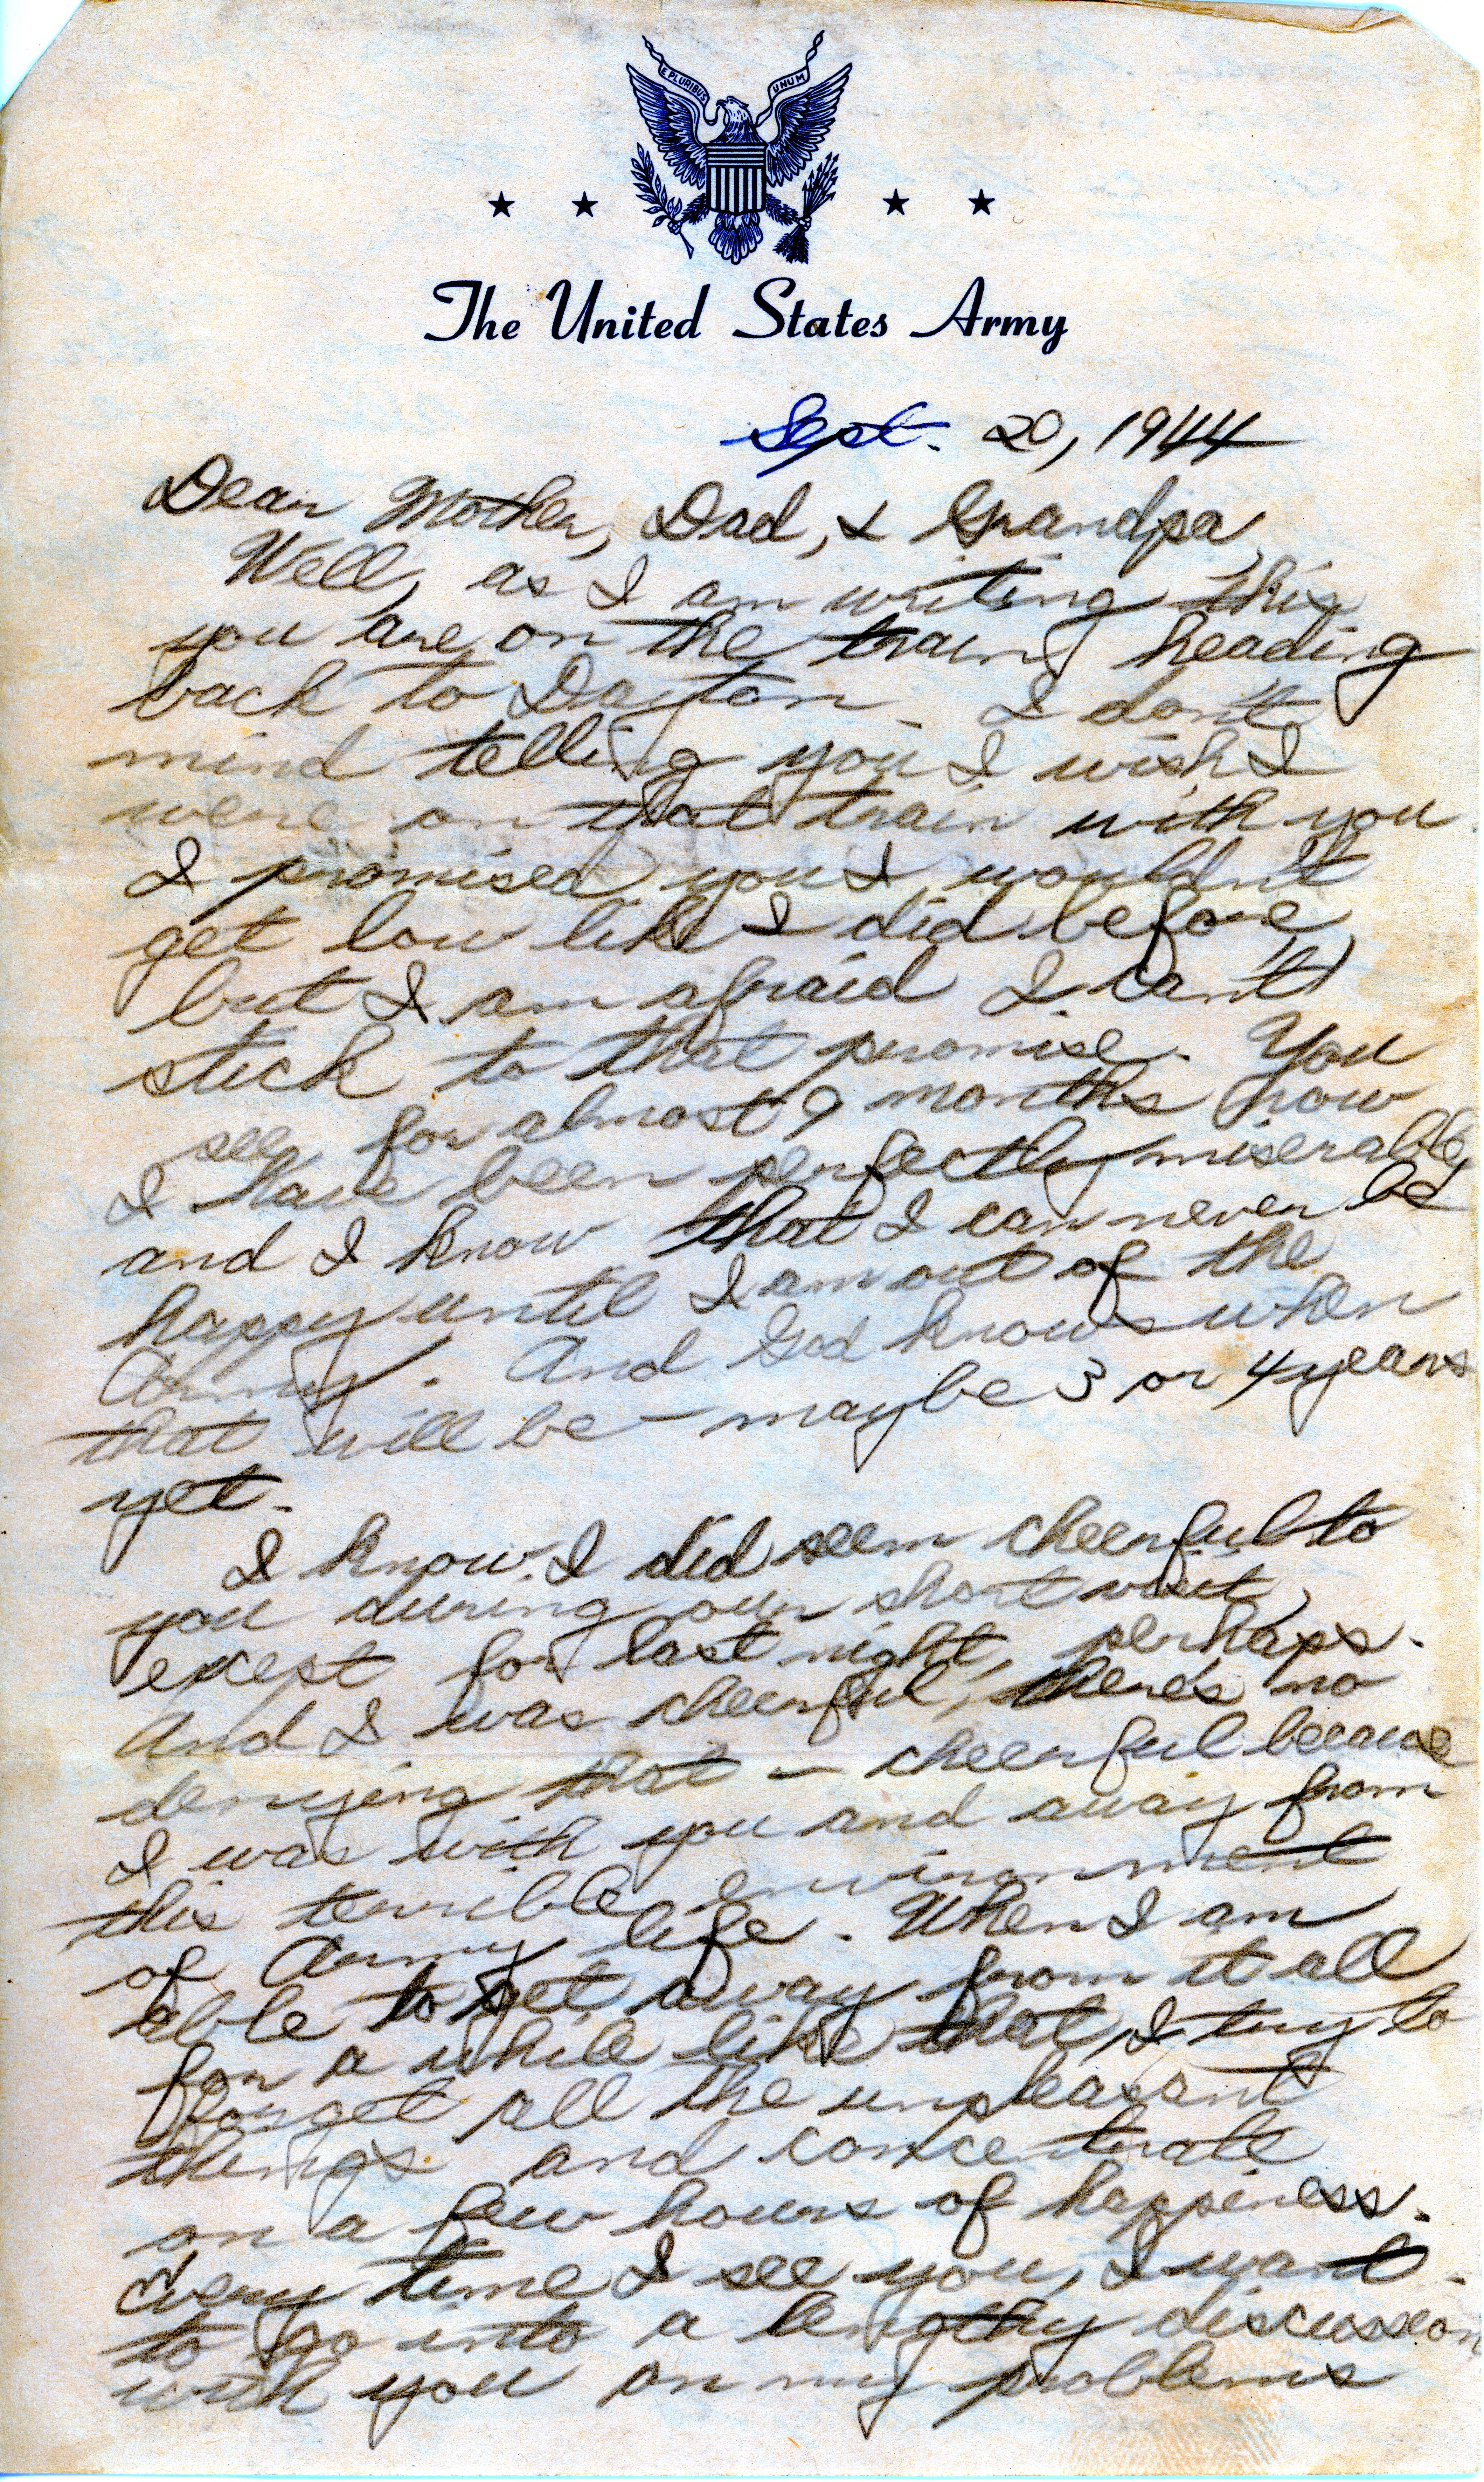 E PLURIBUS UNUM
The United States Army
Sept. 20, 1944
Dear Mother, Dad, & Grandpa,
Well, as I am writing this
you are on the train heading
back to Dayton. I don't
mind telling you I wish I
were on that train with you.
I promised you I wouldn't
get low like I did before,
but I am afraid I can't
stick to that promise. You
see, for almost 9 months now
I have been perfectly miserable,
and I know that I can never be
happy until I am out of the
Army. And God knows when
that will be – maybe 3 or 4 years
yet.
I know I did seem cheerful to
you during our short visit,
except for last night, perhaps.
And I was cheerful, there's no
denying that – cheerful because
I was with you and away from
this terrible environment
of Army life. When I am
able to get away from it all
for a while like that, I try to
forget all the unpleasant
things and concentrate
on a few hours of happiness.
Every time I see you, I want
to go into a lengthy discussion
with you on my problems